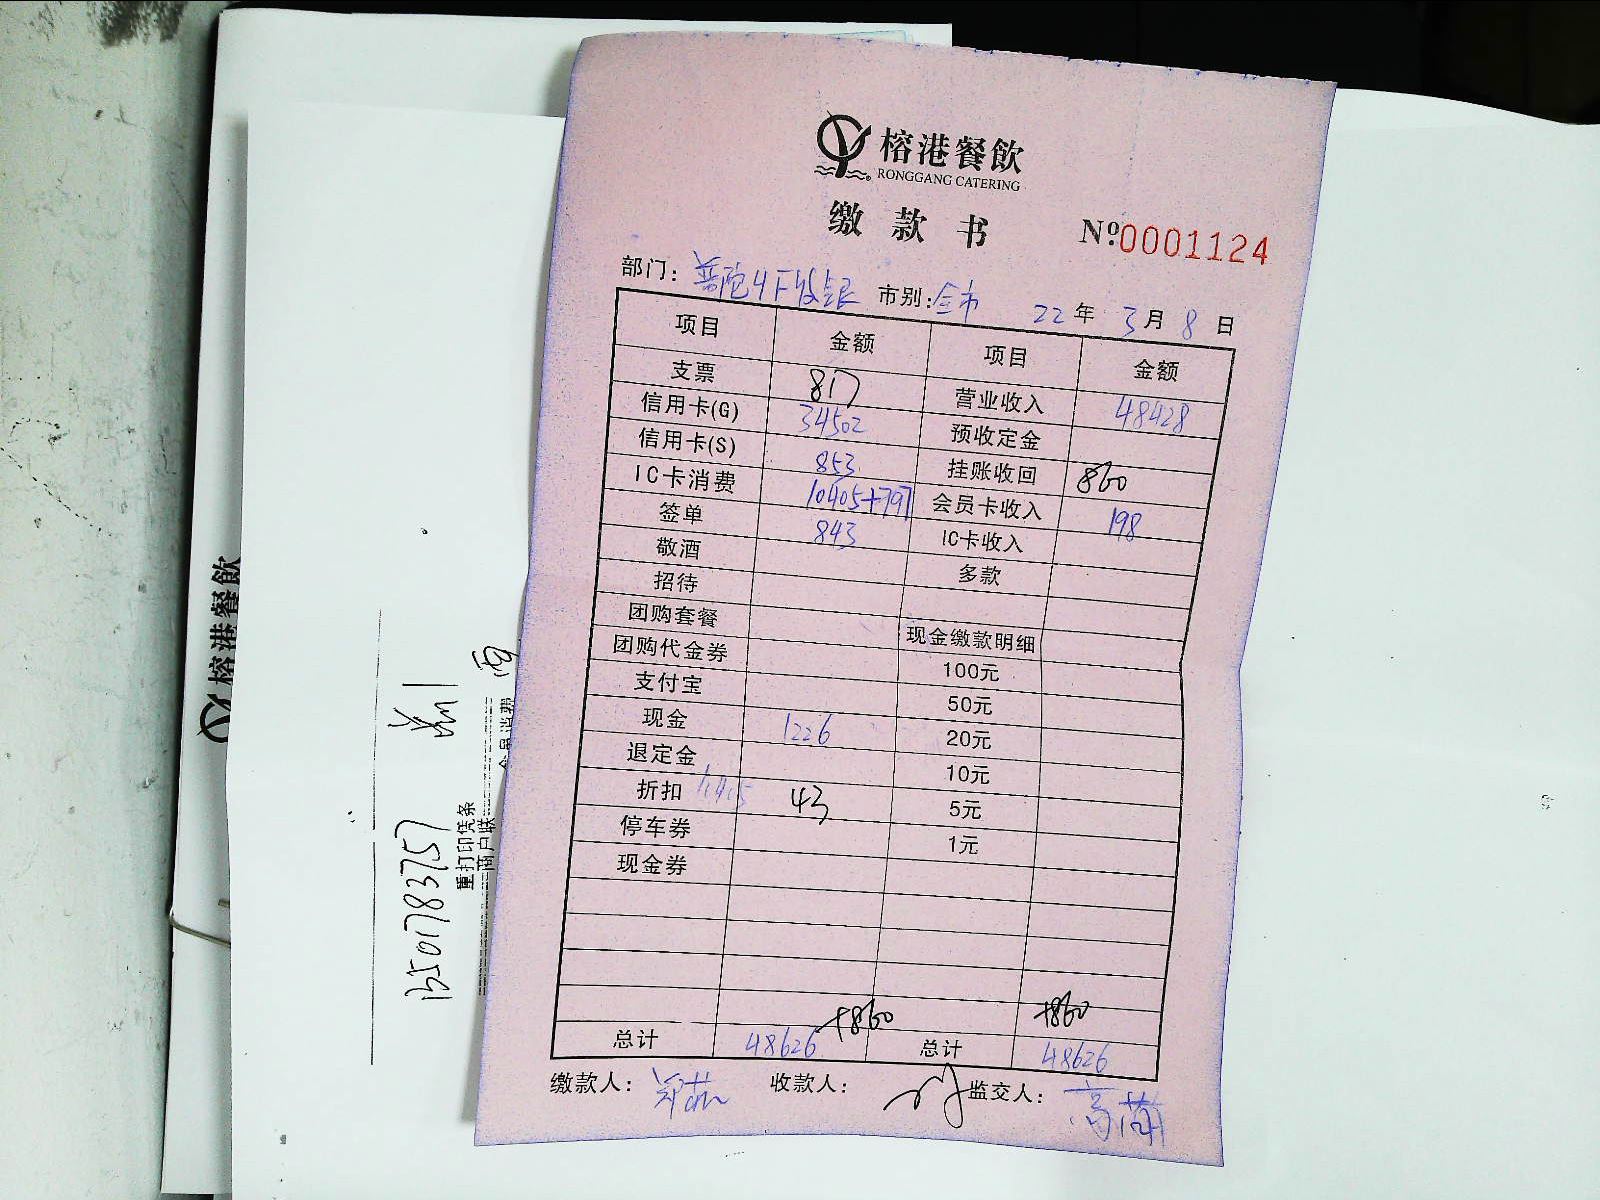 榕港餐飲
RONGGANG CATERING
缴款书 Nº 0001124
部门: 普陀4F收银 市别: 全市 22年 3月 8日
项目 金额 项目 金额
支票 817 营业收入 48428
信用卡(G) 34502 预收定金
信用卡(S) 853 挂账收回 860
IC卡消费 10405+797 会员卡收入 198
签单 843 IC卡收入
敬酒 多款
招待
团购套餐 现金缴款明细
团购代金券 100元
支付宝 50元
现金 1226 20元
退定金 10元
折扣 43 5元
停车券 1元
现金券
+860 +860
总计 48626 总计 48626
缴款人: 收款人: 监交人:
榕港餐飲
重打印凭条
商户联